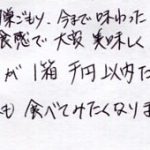 巣ごもり、今まで味わった
食感で大変美味しく
が1箱 千円以内だ
も食べてみたくなりま